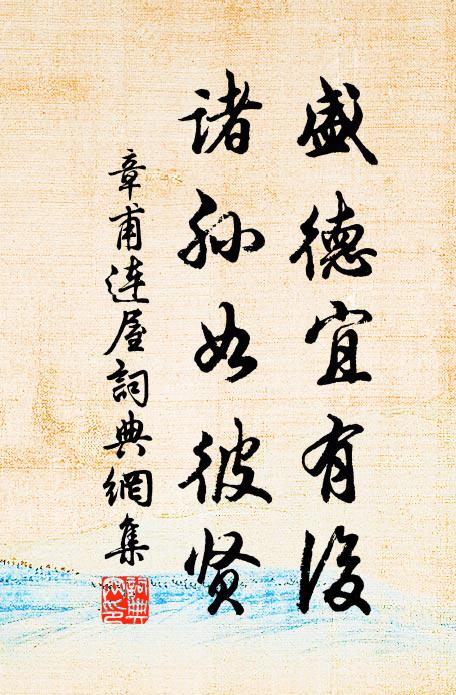 盛德宜有後
诸孙如彼贤
章甫连屋詞典網集
詞典